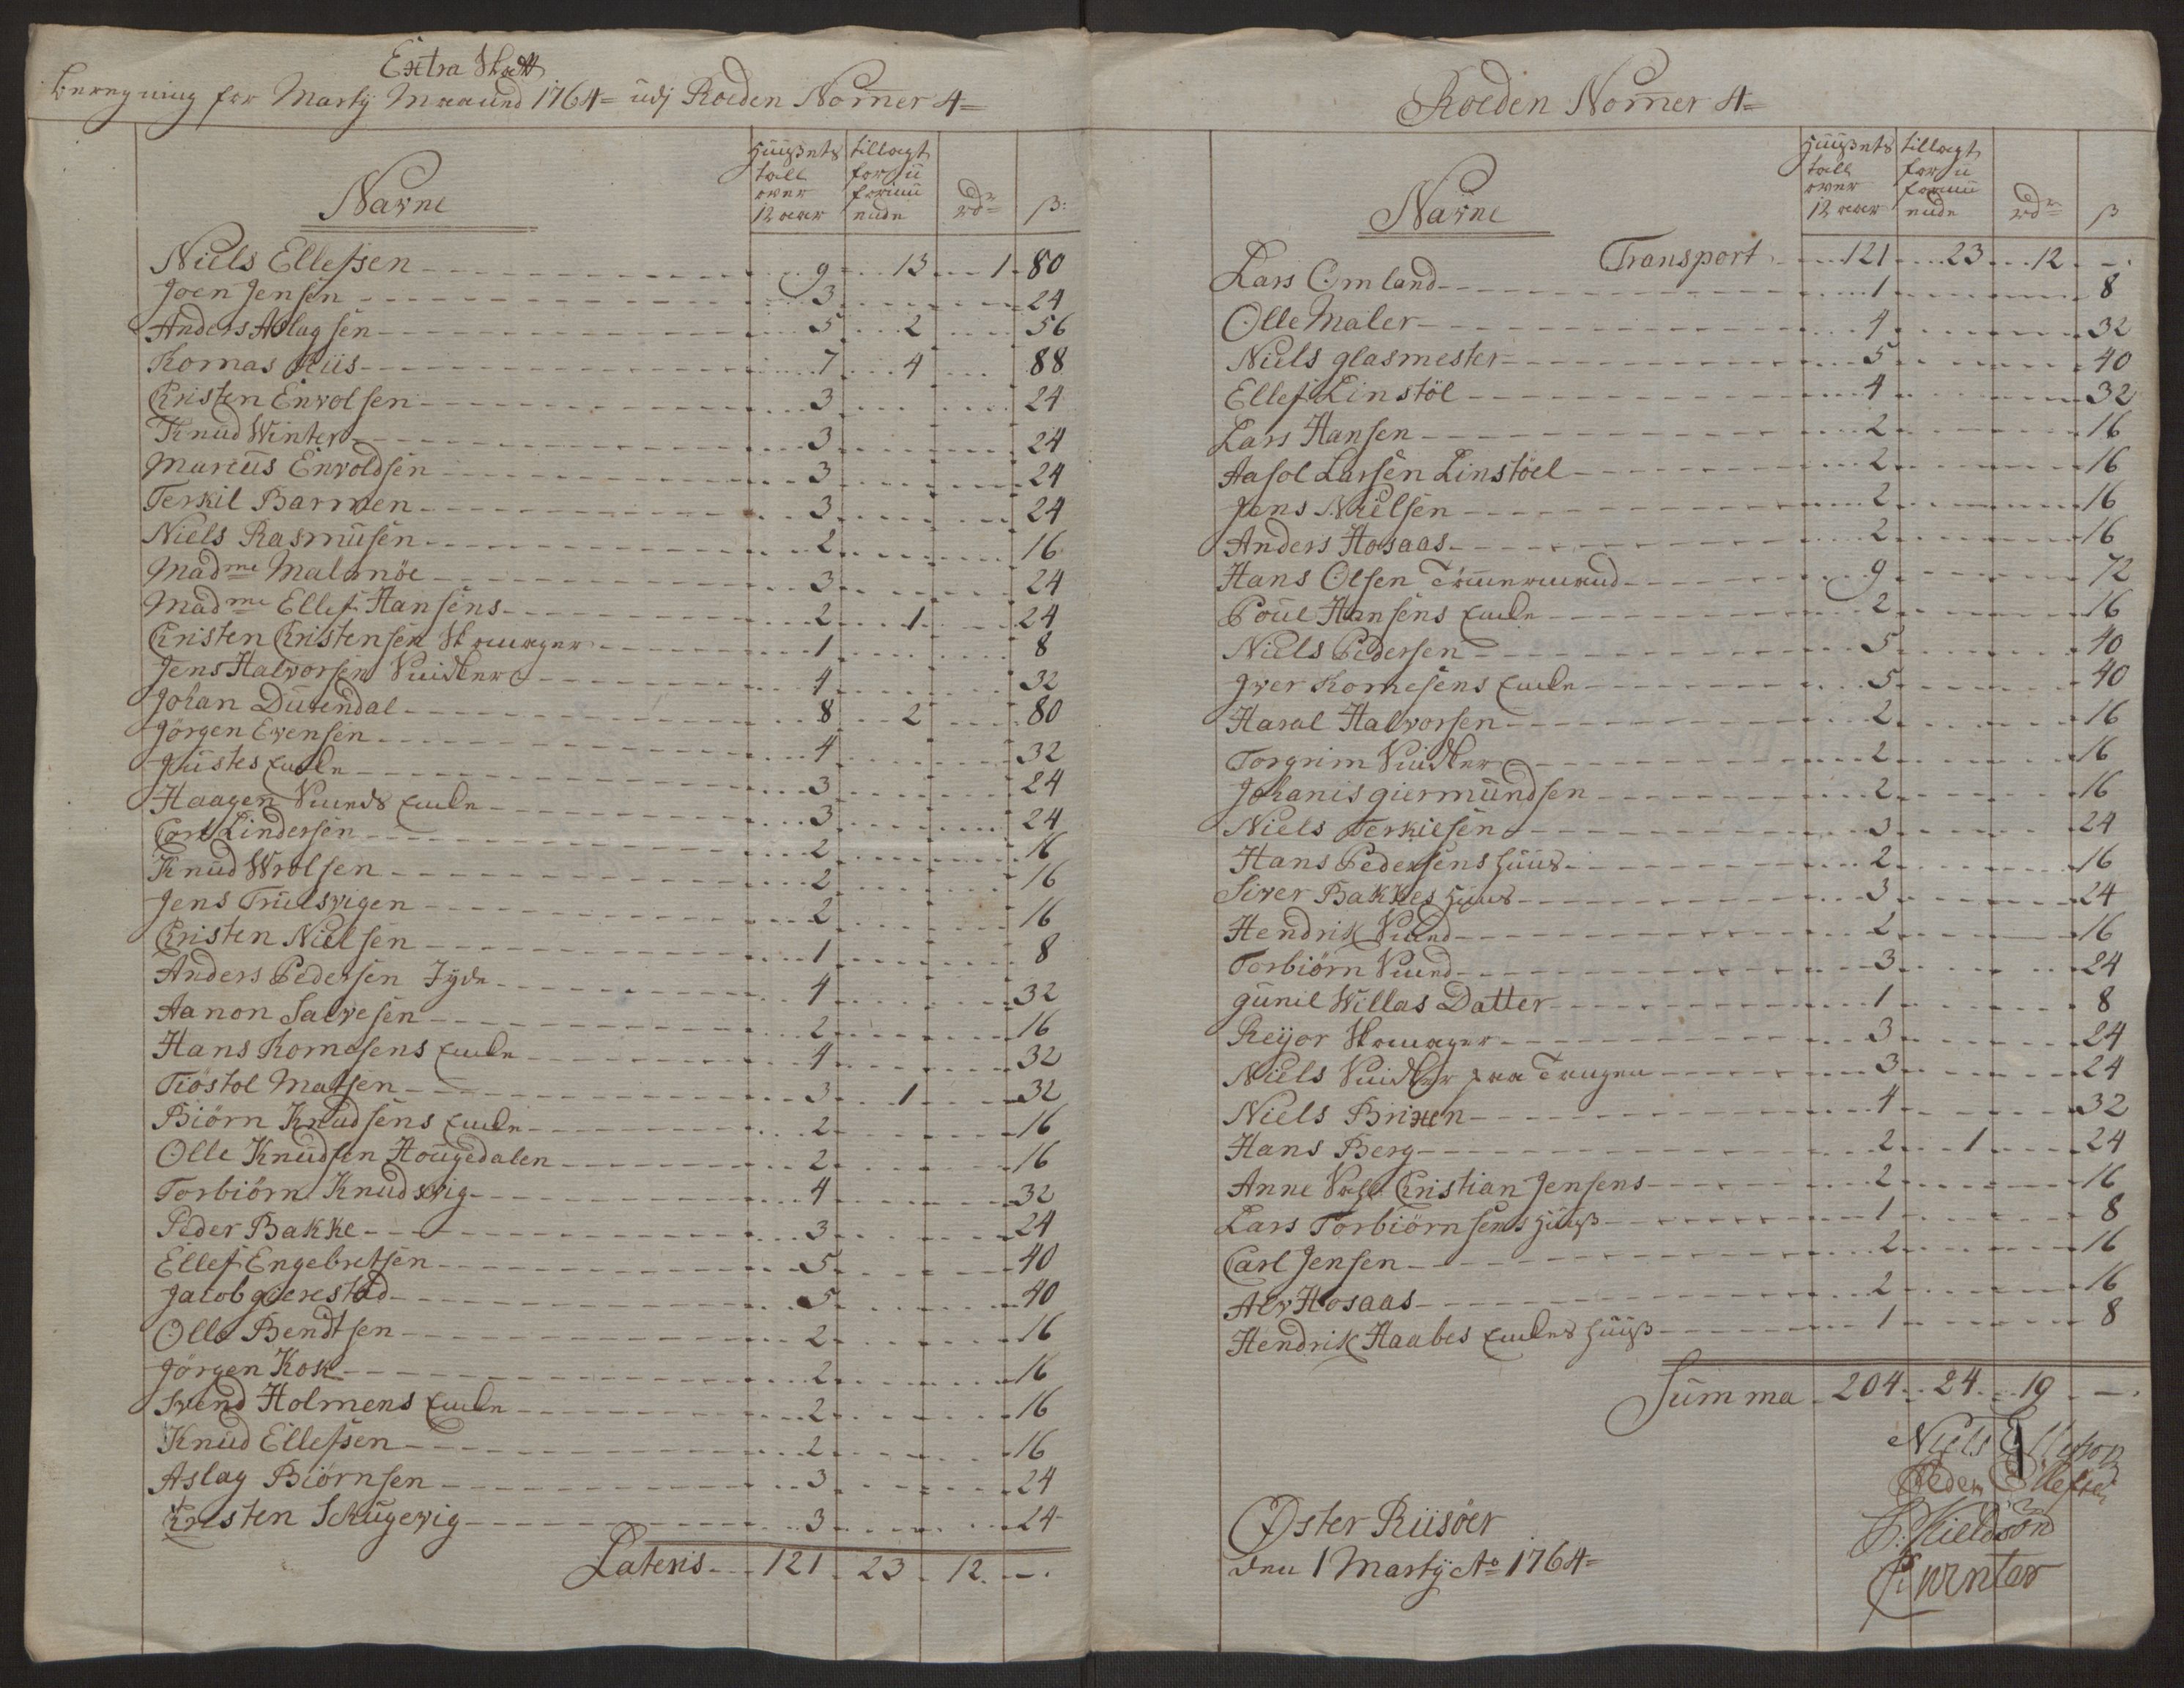 Extra Skatt
beregning for Martij Maaned 1764= udj Roeden Nomer 4=
Navne
Huusets tall over 12 aar
tillagt for u formuende
rdr
ß:
Niels Ellefsen 9 13 1 80
Joen Jensen 3 24
Anders Aslagsen 5 2 56
Komas Riis 7 4 88
Cristen Envolsen 3 24
Knud Winter 3 24
Marcus Envoldsen 3 24
Terkil Barmen 3 24
Niels Rasmusen 2 16
Madme Malmöe 3 24
Madme Ellef Hansens 2 1 24
Cristen Cristensen Skomager 1 8
Jens Halvorsen Snidker 4 32
Johan Durendal 8 2 80
Jörgen Evensen 4 32
Justes Enke 3 24
Haagen Smeds Enke 3 24
Carl Lindersen 2 16
Knud Wrolsen 2 16
Jens Trulsvigen 2 16
Cristen Nielsen 1 8
Anders Pedersen Jyde 4 32
Aanon Salvesen 2 16
Hans Komesens Enke 4 32
Tiöstol Matsen 3 1 32
Biörn Knudsens Enke 2 16
Olle Knudsen Hougedalen 2 16
Torbiörn Knudsvig 4 32
Peder Bakke 3 24
Ellef Engebretsen 5 40
Jacob gierestad 5 40
Olle Bendtsen 2 16
Jörgen Kok 2 16
Svend Holmens Enke 2 16
Knud Ellefsen 2 16
Aslag Biörnsen 3 24
Kristen Schugevig 3 24
Lateris 121 23 12 -
Roeden Nomer 4=
Navne
Huusets tall over 12 aar
tillagt for u formuende
rdr
ß
Transport 121 23 12 -
Lars Omland 1 8
Olle Maler 4 32
Niels glasmester 5 40
Ellef Linstöl 4 32
Lars Hansen 2 16
Aasol Larsen Linstöel 2 16
Jens Nielsen 2 16
Anders Hosaas 2 16
Hans Olsen Tömermand 9 72
Poul Hansens Enke 2 16
Niels Pedersen 5 40
Iver Komesens Enke 5 40
Haral Halvorsen 2 16
Torgrim Snidker 2 16
Johanis giermundsen 2 16
Niels Terkilsen 3 24
Hans Pedersens Huus 2 16
Siver Bakkes Huus 3 24
Hendrik Smed 2 16
Torbiörn Smed 3 24
gunil Willas Datter 1 8
Reijor Skomager 3 24
Niels Snidker paa Tangen 3 24
Niels Brixen 4 32
Hans Berg 2 1 24
Anne Sahl Cristian Jensens 2 16
Lars Torbiörnsens Huuß 1 8
Carl Jensen 2 16
Alv Hosaas 2 16
Hendrik Haabes Enkes Huuß 1 8
Summa 204 24 19 -
Niels Ellefsen
Peder Ellefsen
Øster Riisöer
den 1 Martij Ao 1764=
Kieldsön
winter